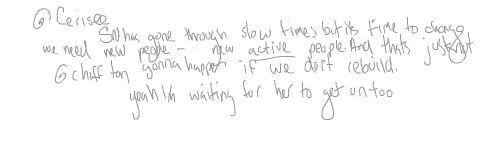 @Cerisee
SNI has gone through slow times but its time to change
we need new people - new active people. And thats just not
gonna happen if we dont rebuild.
yeah Im waiting for her to get on too